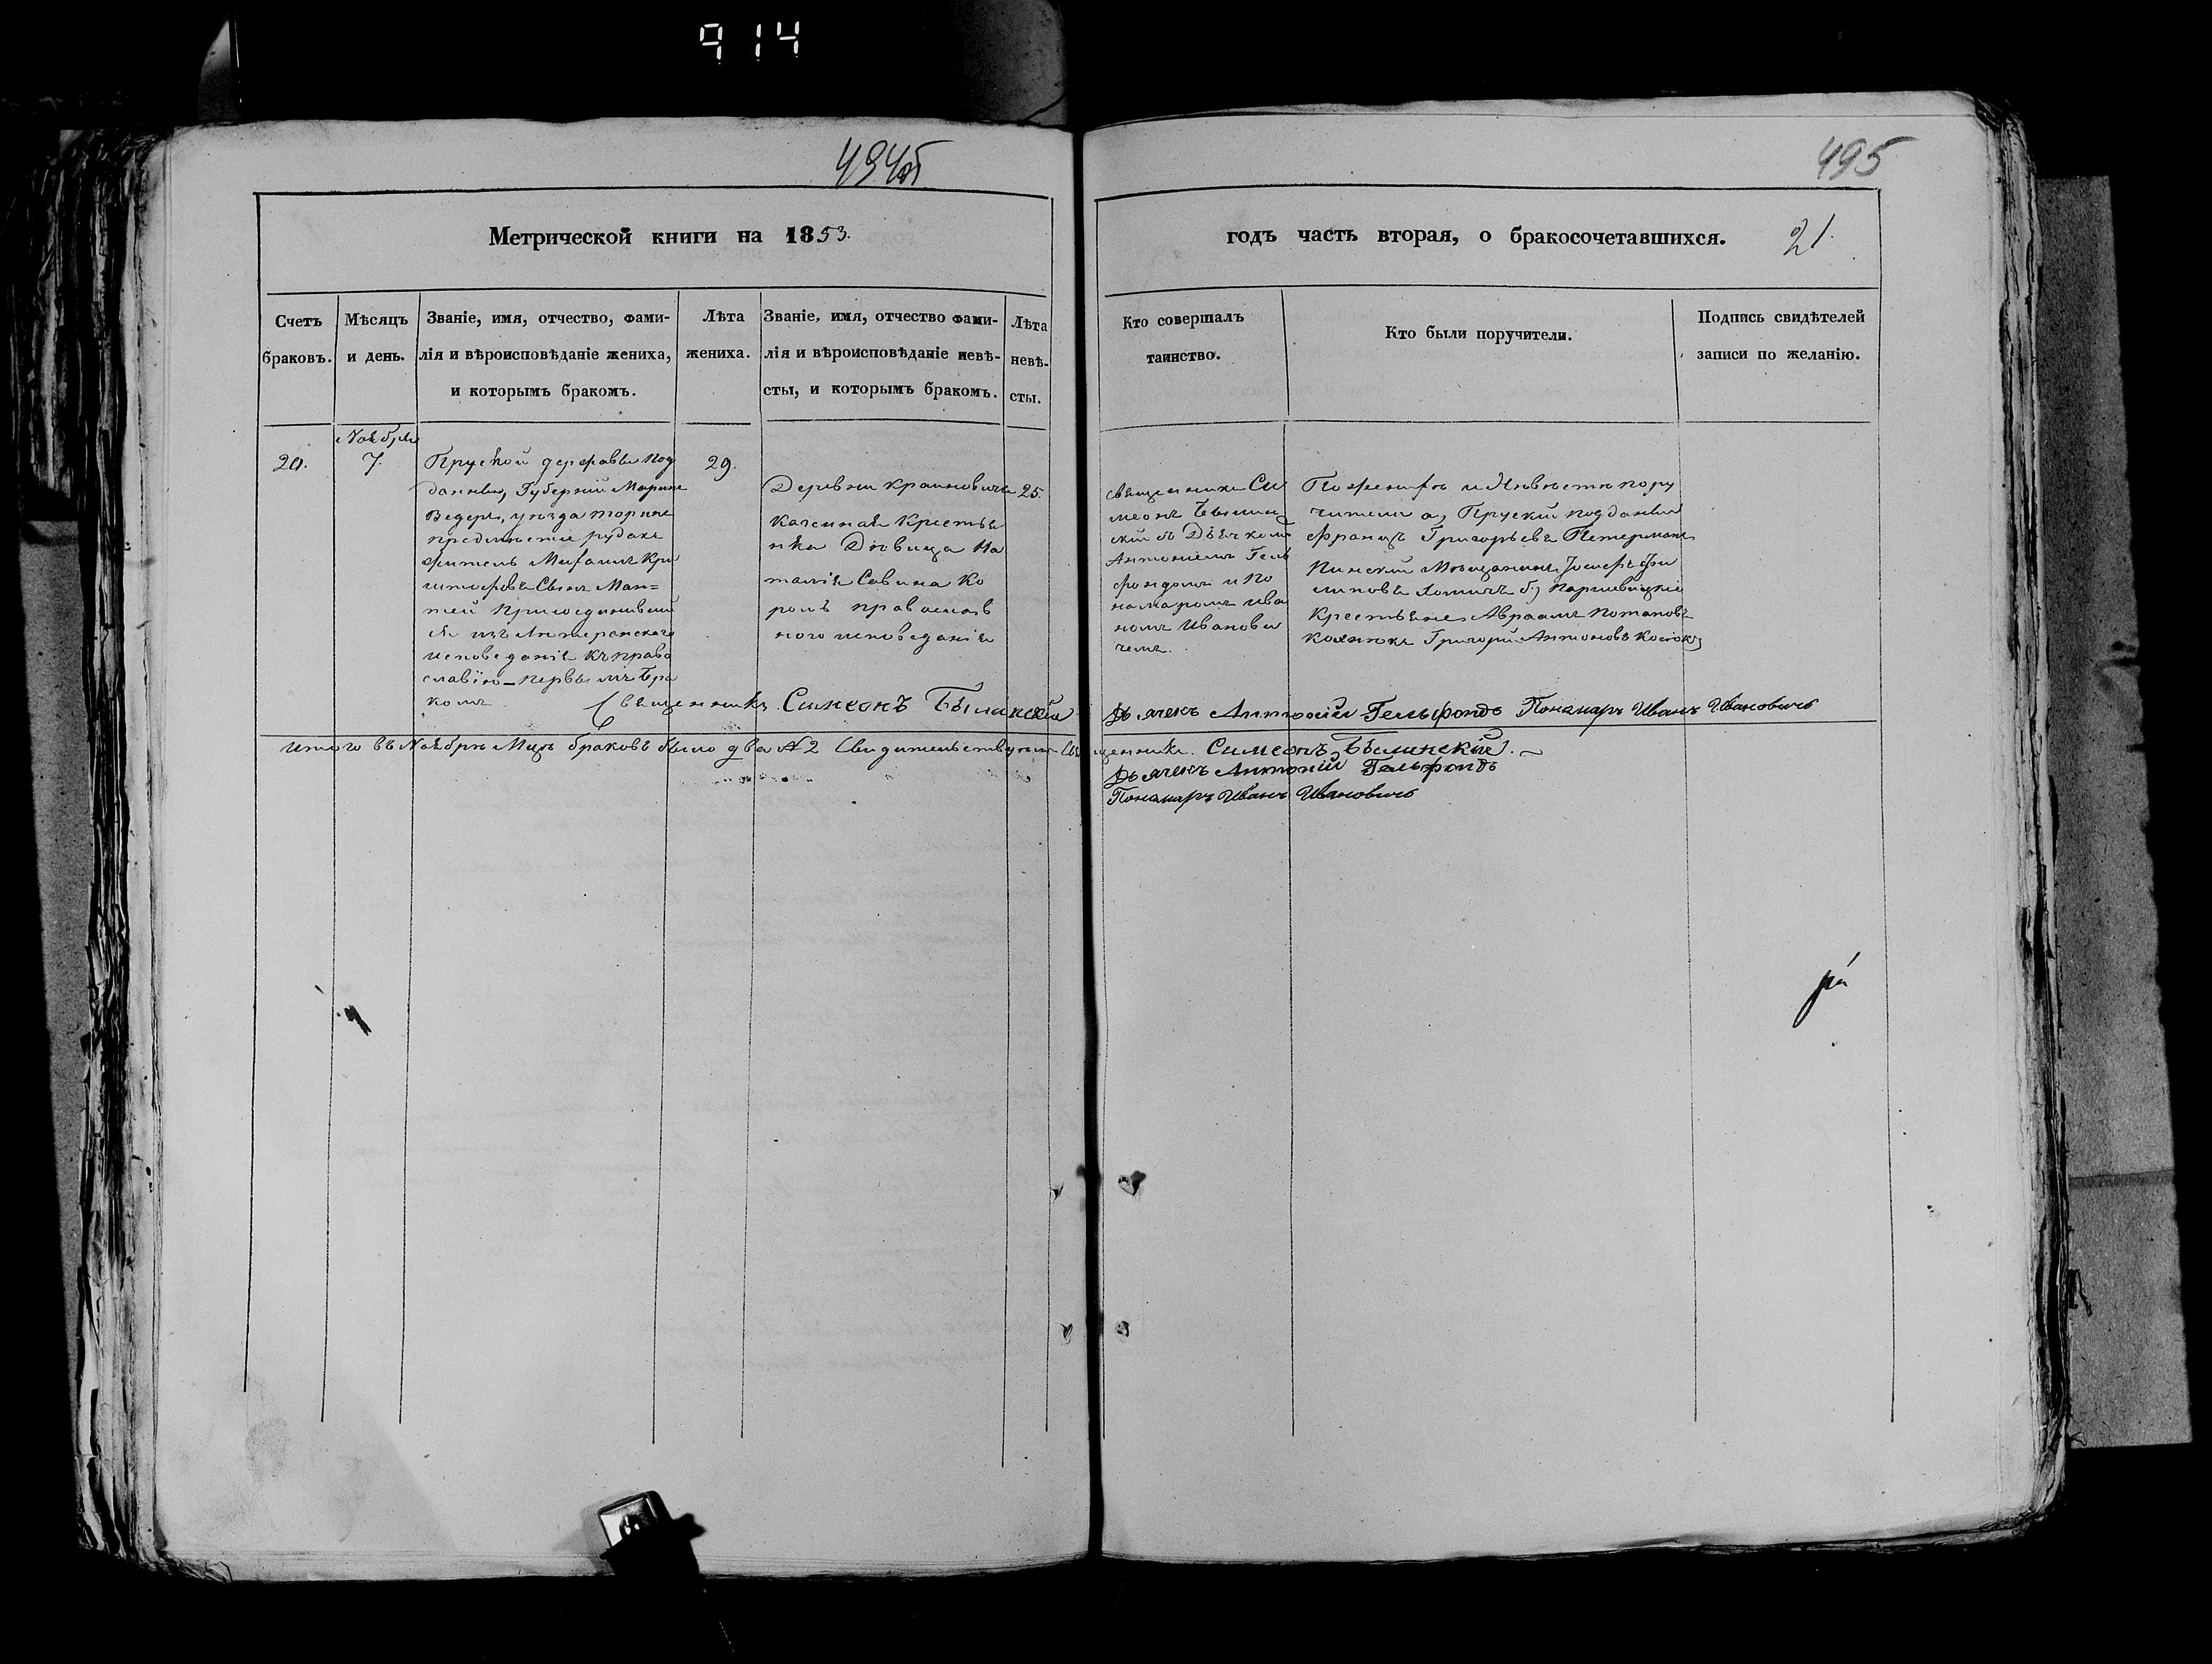 914
494об
495
Метрической книги на 1853.
годъ часть вторая, о бракосочетавшихся. 21.
Счетъ
браковъ.
Мѣсяцъ
и день.
Званіе, имя, отчество, фами-
лія и вѣроисповѣданіе жениха,
и которымъ бракомъ.
Лѣта
жениха.
Званіе, имя, отчество фами-
лія и вѣроисповѣданіе невѣ-
сты, и которымъ бракомъ.
Лѣта
невѣ-
сты.
Кто совершалъ
таинство.
Кто были поручители.
Подпись свидѣтелей
записи по желанію.
20.
Ноября
7.
Пруской державы под
данный, Губерніи Марiен
Ведеръ, уѣзда торине
рудаке
житель Михаилъ Кри
штофовъ Сынъ Ман=
тей присоединивший
ся изъ Лютеранскаго
исповеданія къ право
славію – первымъ бра
комъ
29.
Деревни Крайновичъ
казенная крестья
нка Дѣвица На
талія Савина Ко
роль православ
ного исповеданія
25.
священникъ Си
меонъ Былин
скій съ Дьячкомъ
Антоніемъ Гель
фондомъ и По
номаромъ Ива
номъ Иванови
чемъ.
По женихѣ и Невѣстѣ пору
чители а, Пруский подданный
Францъ Григорьевъ Петерманъ
Пинский Мѣщанинъ Іосифъ Фи
липовъ Хомичъ б, Паршевицкіе
Крестьяне Авраамъ Потаповъ
Григорій Антоновъ
Священникъ Симеонъ Былинскій
Дьячекъ Антоній Гельфондъ Понамарь Иванъ Ивановичъ
Итого въ Ноябрѣ Мцѣ браковъ было два № 2 Священникъ Симеонъ Былинскій.
Дьячекъ Антоній Гельфондъ
Понамарь Иванъ Ивановичъ